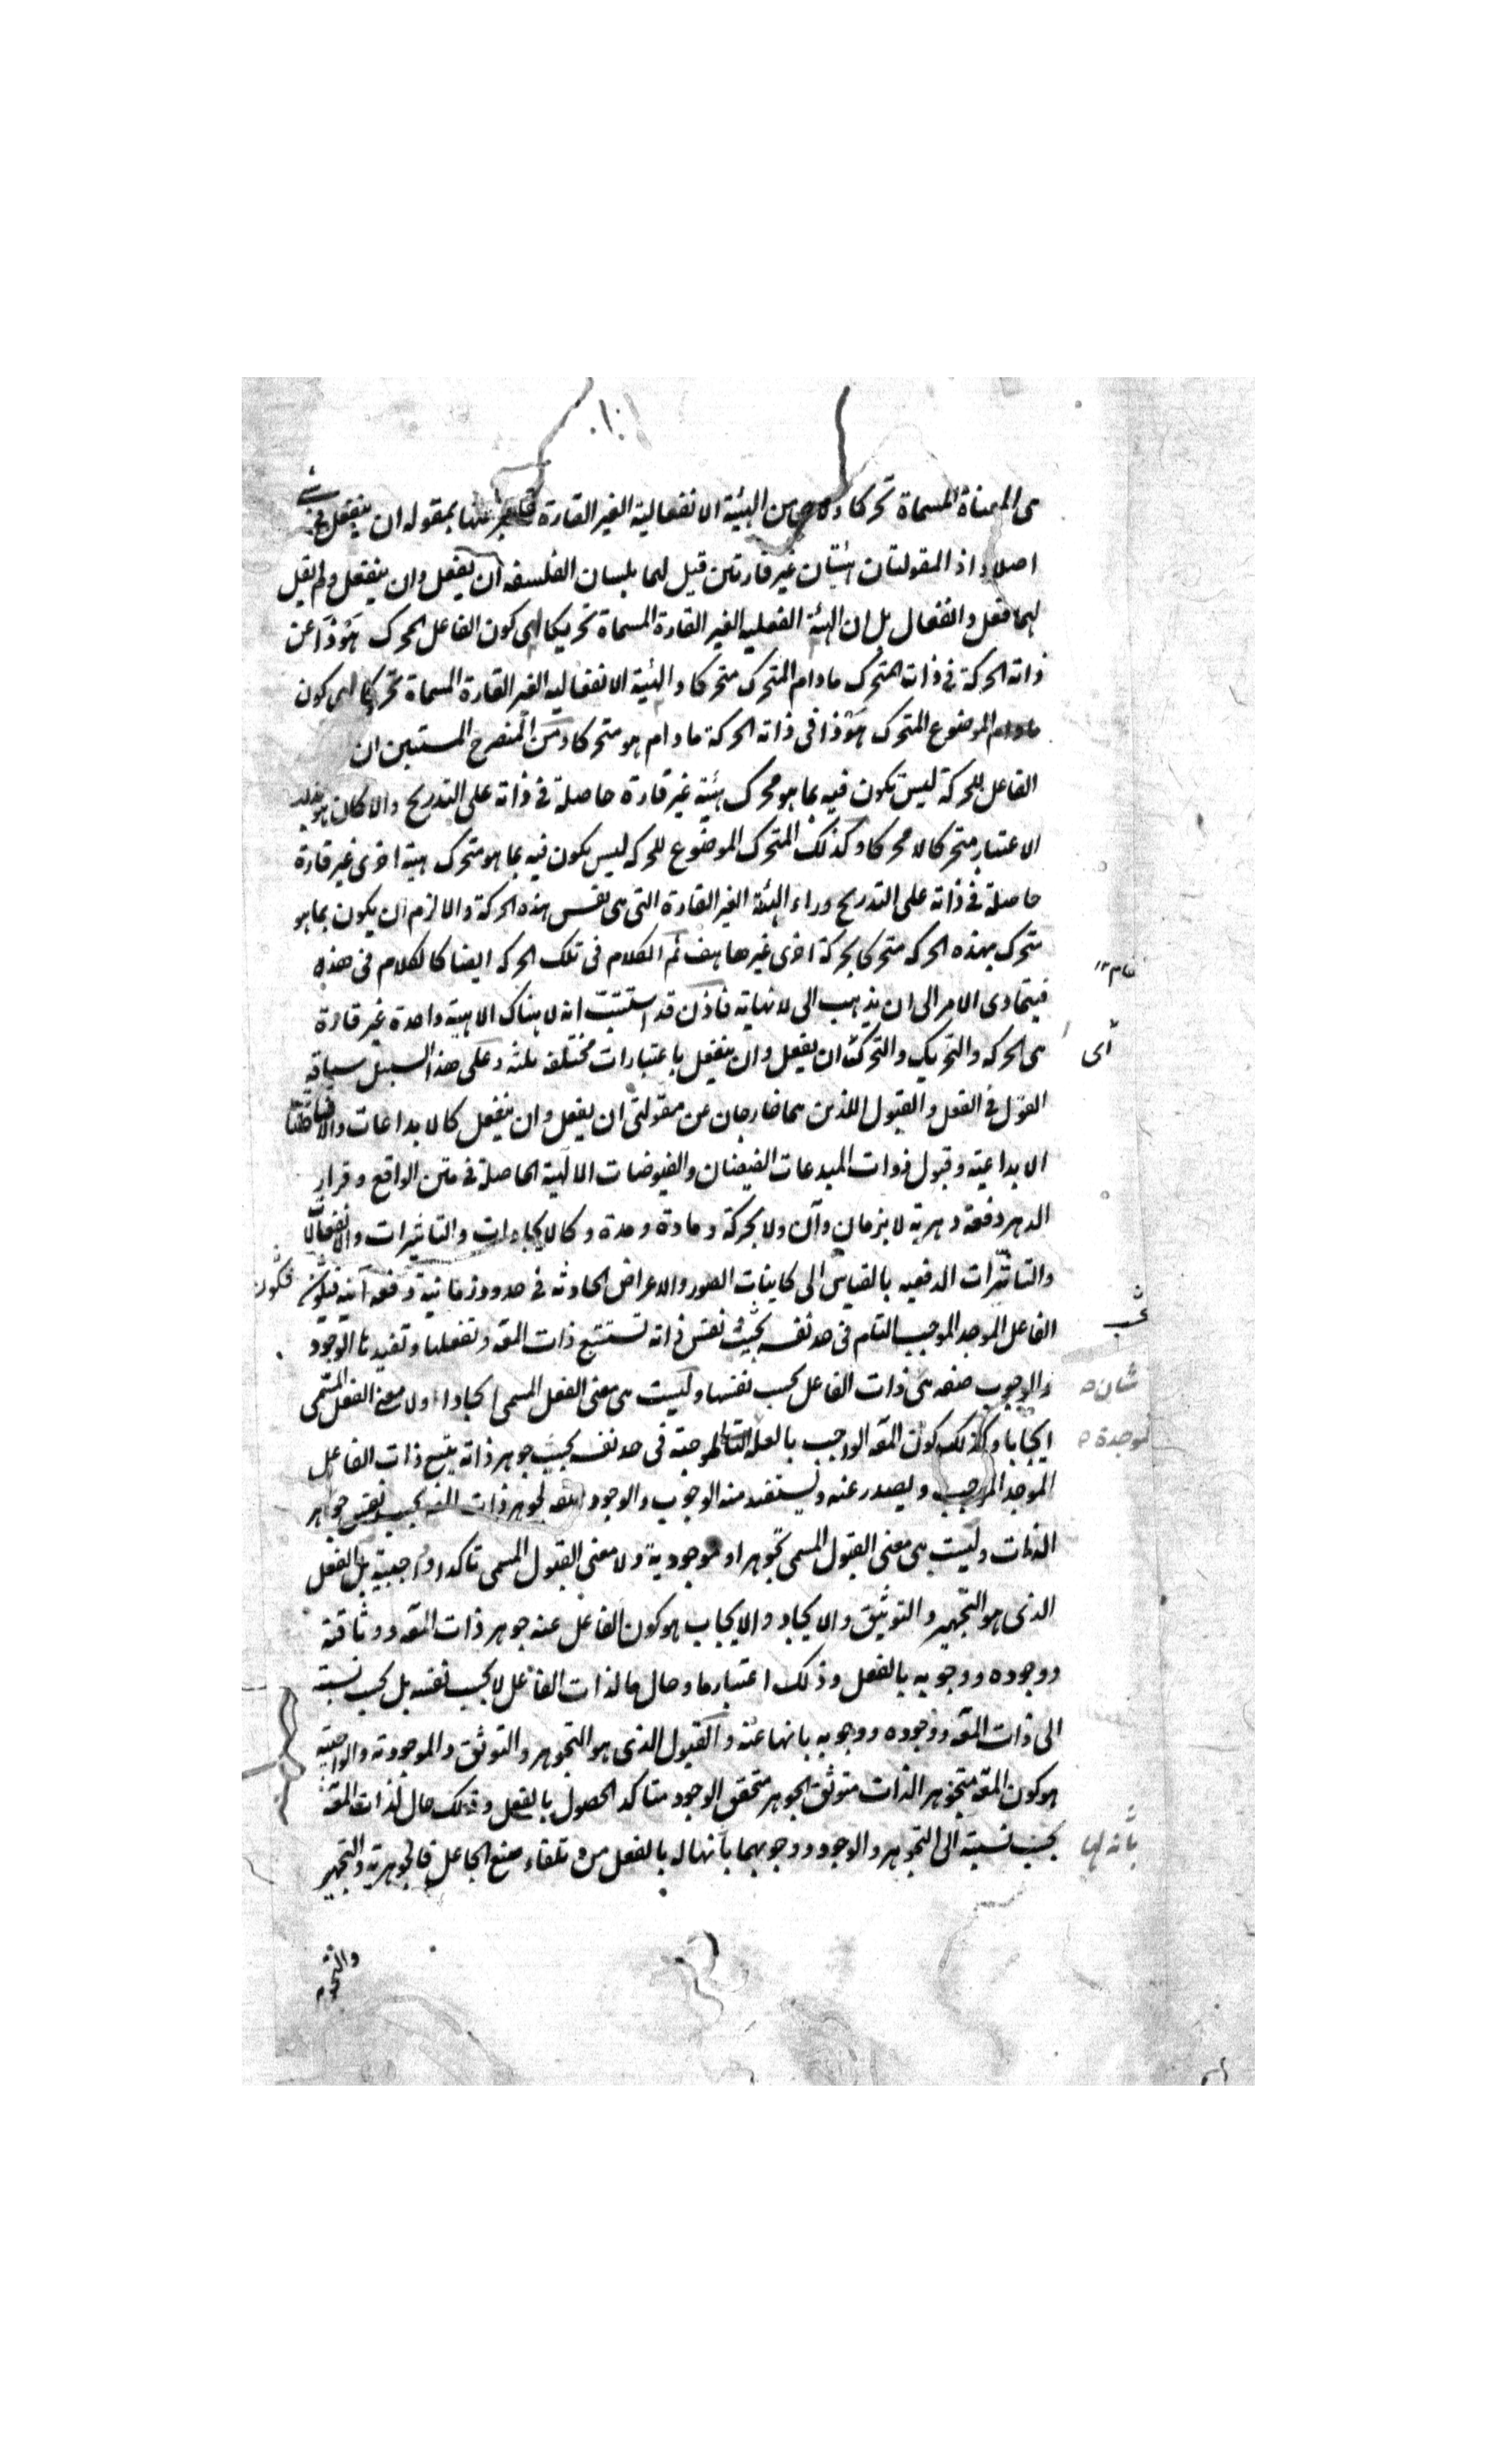 هى الممناة المسماة تحركا ولا هى من الهيئة الانفعالية الغير القارة عنها بمقوله ان ينفعل فى شئ
اصلا اذ المقولتان هيئتان غير قارتين قيل لهما بلسان الفلسفه ان يفعل وان ينفعل ولم يقل
لهما فعل وانفعال بل ان الهيئة الفعليه الغير القارة المسماة تحريكا هى كون الفاعل المحرك هوذا عن
ذاته الحركة فى ذات المتحرك مادام المتحرك متحركا والهيئية الانفعاليه الغير القارة المسماة تحركا هى كون
الموضوع المتحرك هوذا فى ذاته الحركة مادام هو متحركا ومن المنصرح المستبين ان
الفاعل للحركة ليس يكون فيه بما هو محرك هيئية غير قارة حاصلة فى ذاته على التدريج والا كان هو بذلك
الاعتبار متحركا لا محركا وكذلك المتحرك الموضوع للحركه ليس يكون فيه بما هو متحرك هيئة اخرى غير قارة
حاصلة فى ذاته على التدريج وراء الهيئة الغير القارة التى هى نفس هذه الحركة والا لزم ان يكون بما هو
متحرك بهذه الحركه متحركا بحركة اخرى غيرها هف ثم الكلام فى تلك الحركه ايضا كالكلام فى هذه
فيتمادى الامر الى ان يذهب الى لانهاية فاذن قد استتبت انه لا هناك الا هيئة واحدة غير قارة
هى الحركه والتحريك والتحرك اى ان يفعل وان ينفعل باعتبارات مختلفه ثلثه وعلى هذا السبيل سياقه
القول فى الفعل والقبول اللذين هما خارجان عن مقولتى ان يفعل وان ينفعل كالابداعات والافاضات
الابداعية وقبول ذوات المبدعات الفيضان والفيوضات الالهية الحاصلة فى متن الواقع وقرار
الدهر دفعة دهرية لا بزمان وآن ولا بحركة ومادة ومدة وكالايجادات والتاثيرات والانفعالات
والتاثرات الدفعيه بالقياس الى كاينات الصور والاعراض الحادثه فى حدود زمانية دفعه آنيه فيكون
فكون
الفاعل الموجد الموجب التام فى حد نفسه بحيث نفس ذاته تستتبع ذات المعه وتفعلها وتفيدها الوجود
والوجوب صفه هى ذات الفاعل بحسب نفسها وليست هى معنى الفعل المسمى ايجادا ولا معنى الفعل المسمى
شان
ايجابا وكذلك كون المعه الواجب بالعله التامة الموجبة فى حد نفسه بحيث جوهر ذاته يتبع ذات الفاعل
الموجدة
الموجد الموجب ويصدر عنه ويستفيد منه الوجوب والوجود صفه لجوهر ذات المعه بحسب نفس جواهر
الذات وليست هى معنى القبول المسمى تجوهرا او موجودية ولا معنى القبول المسمى تاكدا وواجبية بل الفعل
الذى هو التجهير والتوثيق والايجاد والايجاب هو كون الفاعل عنه جوهر ذات المعه ووثاقته
ووجوده ووجوبه بالفعل وذلك اعتبار ما وحال ما لذات الفاعل لا بحسب نفسه بل بحسب نسبته
الى ذات المعه ووجوده ووجوبه بانها عنه والقبول الذى هو التجوهر والتوثق والموجودية والواجبية
هو كون المعه متجوهر الذات متوثق الجوهر متحقق الوجود متاكد الحصول بالفعل وذلك حال لذات المعه
بحسب نسبته الى التجوهر والوجود ووجوبهما بانها له بالفعل من تلقاء صنع الجاعل فالجوهرية والتجهير
بانه لها